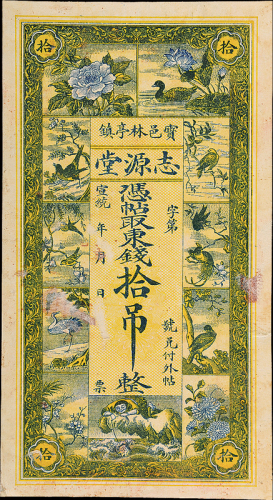 拾 拾
寳邑林亭鎮
志源堂
字第 號 兑付外帖
憑帖取東錢拾吊整
宣統 年 月 日 票
拾 拾